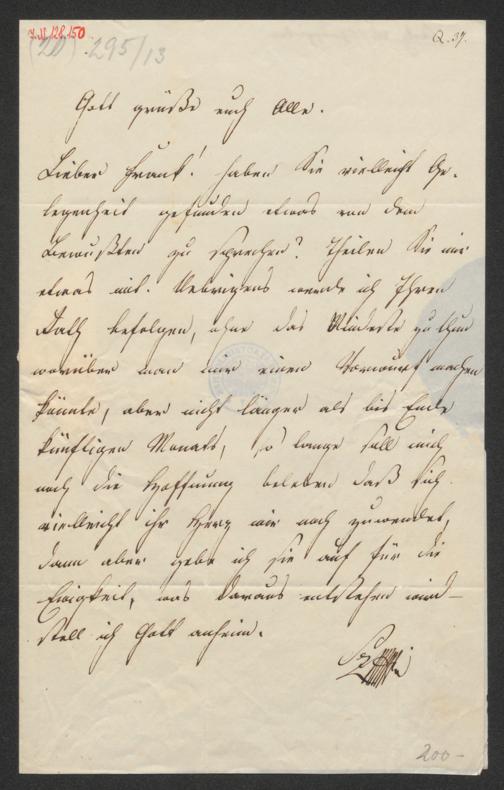 I.N. 128.150
(2D) 295/13
Q. 37.
Gott grüße euch Alle.
Lieber Frank! haben Sie vielleicht Ge-
legenheit gefunden etwas von dem
Bewußten zu sprechen? Theilen Sie mir
etwas mit. Uebrigens werde ich Ihren
Rath befolgen, ohne das Mindeste zu thun
worüber man mir einen Vorwurf machen
könnte, aber nicht länger als bis Ende
künftigen Monats, so lange soll mich
noch die Hoffnung beleben daß sich
vielleicht ihr Herz mir noch zuwendet,
dann aber gebe ich sie auf für die
Ewigkeit, was daraus entstehen wird –
stell ich Gott anheim.
200-